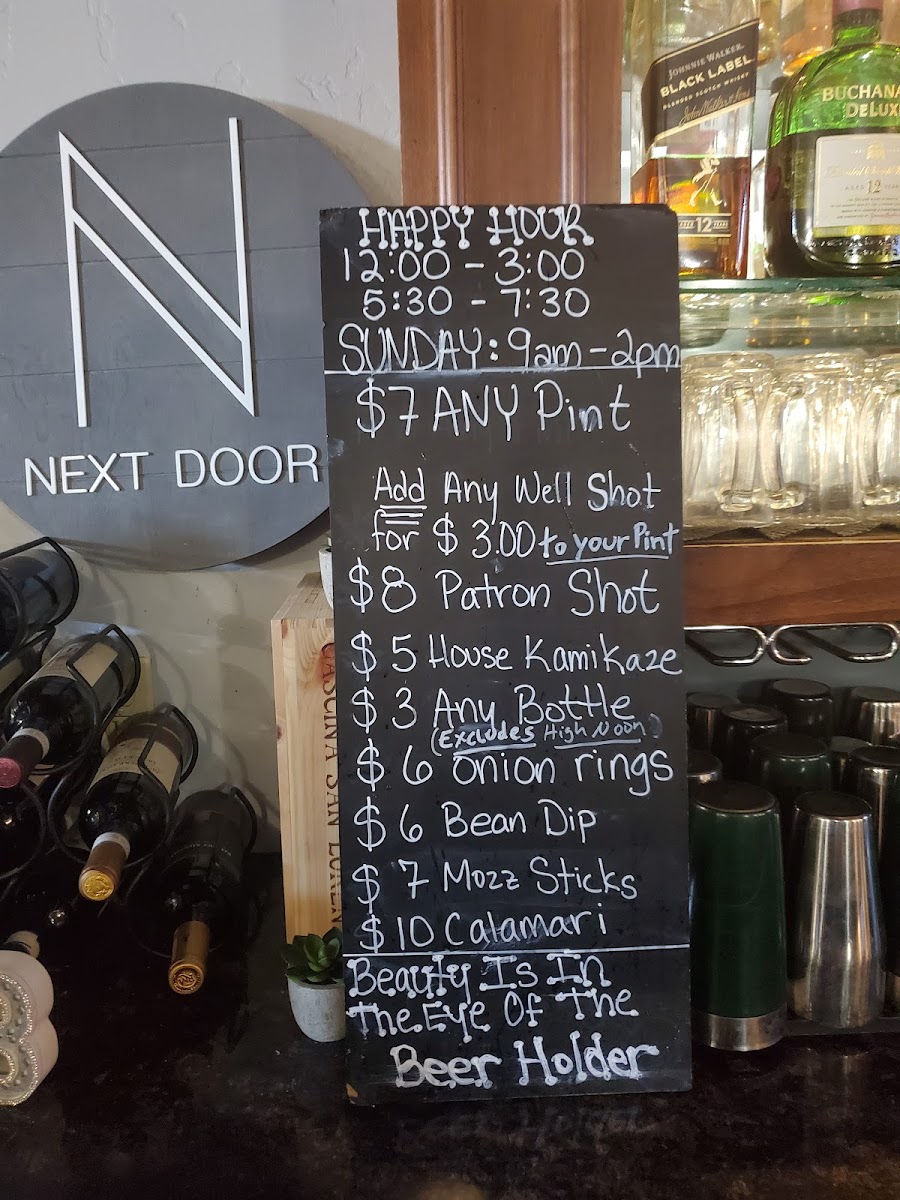 N
NEXT DOOR
HAPPY HOUR
12:00 - 3:00
5:30 - 7:30
SUNDAY: 9am - 2pm
$7 ANY Pint
Add Any Well Shot
for $3.00 to your Pint
$8 Patron Shot
$5 House Kamikaze
$3 Any Bottle
(Excludes High Noon)
$6 onion rings
$6 Bean Dip
$7 Mozz Sticks
$10 Calamari
Beauty Is In
The Eye Of The
Beer Holder
JOHNNIE WALKER
BLACK LABEL
BLENDED SCOTCH WHISKY
AGED 12 YEARS
BUCHANA
DELUX
AGED 12 YEARS
CASCINA SAN LOREN